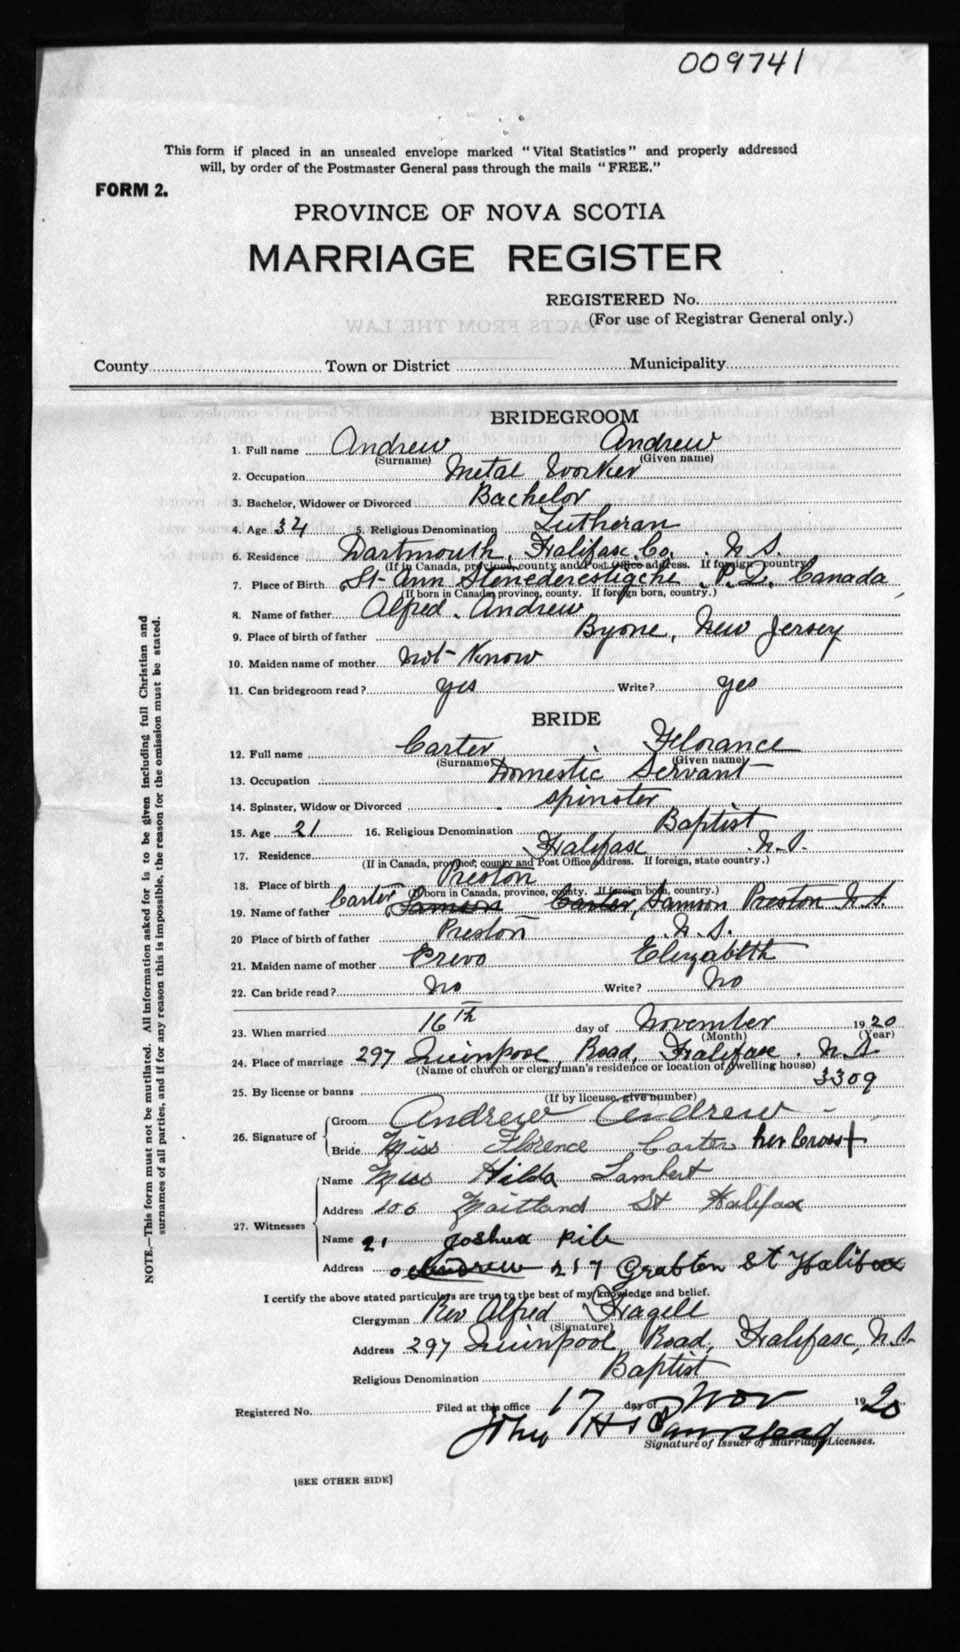 009741
This form if placed in an unsealed envelope marked "Vital Statistics" and properly addressed
will, by order of the Postmaster General pass through the mails "FREE."
FORM 2.
PROVINCE OF NOVA SCOTIA
MARRIAGE REGISTER
REGISTERED No.
(For use of Registrar General only.)
County Town or District Municipality
BRIDEGROOM
1. Full name Andrew Andrew
(Surname) (Given name)
2. Occupation Metal Worker
3. Bachelor, Widower or Divorced Bachelor
4. Age 34 5. Religious Denomination Lutheran
6. Residence Dartmouth, Halifax Co. N.S.
(If in Canada, province, county and Post Office address. If foreign country)
7. Place of Birth St Ann P.Q. Canada
(If born in Canada, province, county. If foreign born, country.)
8. Name of father Alfred Andrew
9. Place of birth of father Byone, New Jersey
10. Maiden name of mother Not Know
11. Can bridegroom read? yes Write? yes
BRIDE
12. Full name Carter Florance
(Surname) (Given name)
13. Occupation Domestic Servant
14. Spinster, Widow or Divorced spinster
15. Age 21 16. Religious Denomination Baptist
17. Residence Halifax N.S.
(If in Canada, province, county and Post Office address. If foreign, state country.)
18. Place of birth Preston
(If born in Canada, province, county. If foreign born, country.)
19. Name of father Carter, Samson Carter, Samson Preston N.S.
20 Place of birth of father Preston N.S.
21. Maiden name of mother Prevo Elizabeth
22. Can bride read? No Write? No
23. When married 16th day of November 1920
(Month) (Year)
24. Place of marriage 297 Quinpool Road, Halifax. N.S.
(Name of church or clergyman's residence or location of dwelling house)
25. By license or banns 3309
(If by license, give number)
26. Signature of Groom Andrew Andrew
Bride Miss Florence Carter her Cross +
27. Witnesses Name Miss Hilda Lambert
Address 106 Maitland St Halifax
Name 21 Joshua
Address Andrew 217 Grabton St Halifax
I certify the above stated particulars are true to the best of my knowledge and belief.
Clergyman Rev Alfred
(Signature)
Address 297 Quinpool Road, Halifax, N.S.
Religious Denomination Baptist
Registered No. Filed at this office 17 day of Nov 1920
John H S
Signature of Issuer of Marriage Licenses.
[SEE OTHER SIDE]
NOTE.—This form must not be mutilated. All information asked for is to be given including full Christian and
surnames of all parties, and if for any reason this is impossible, the reason for the omission must be stated.